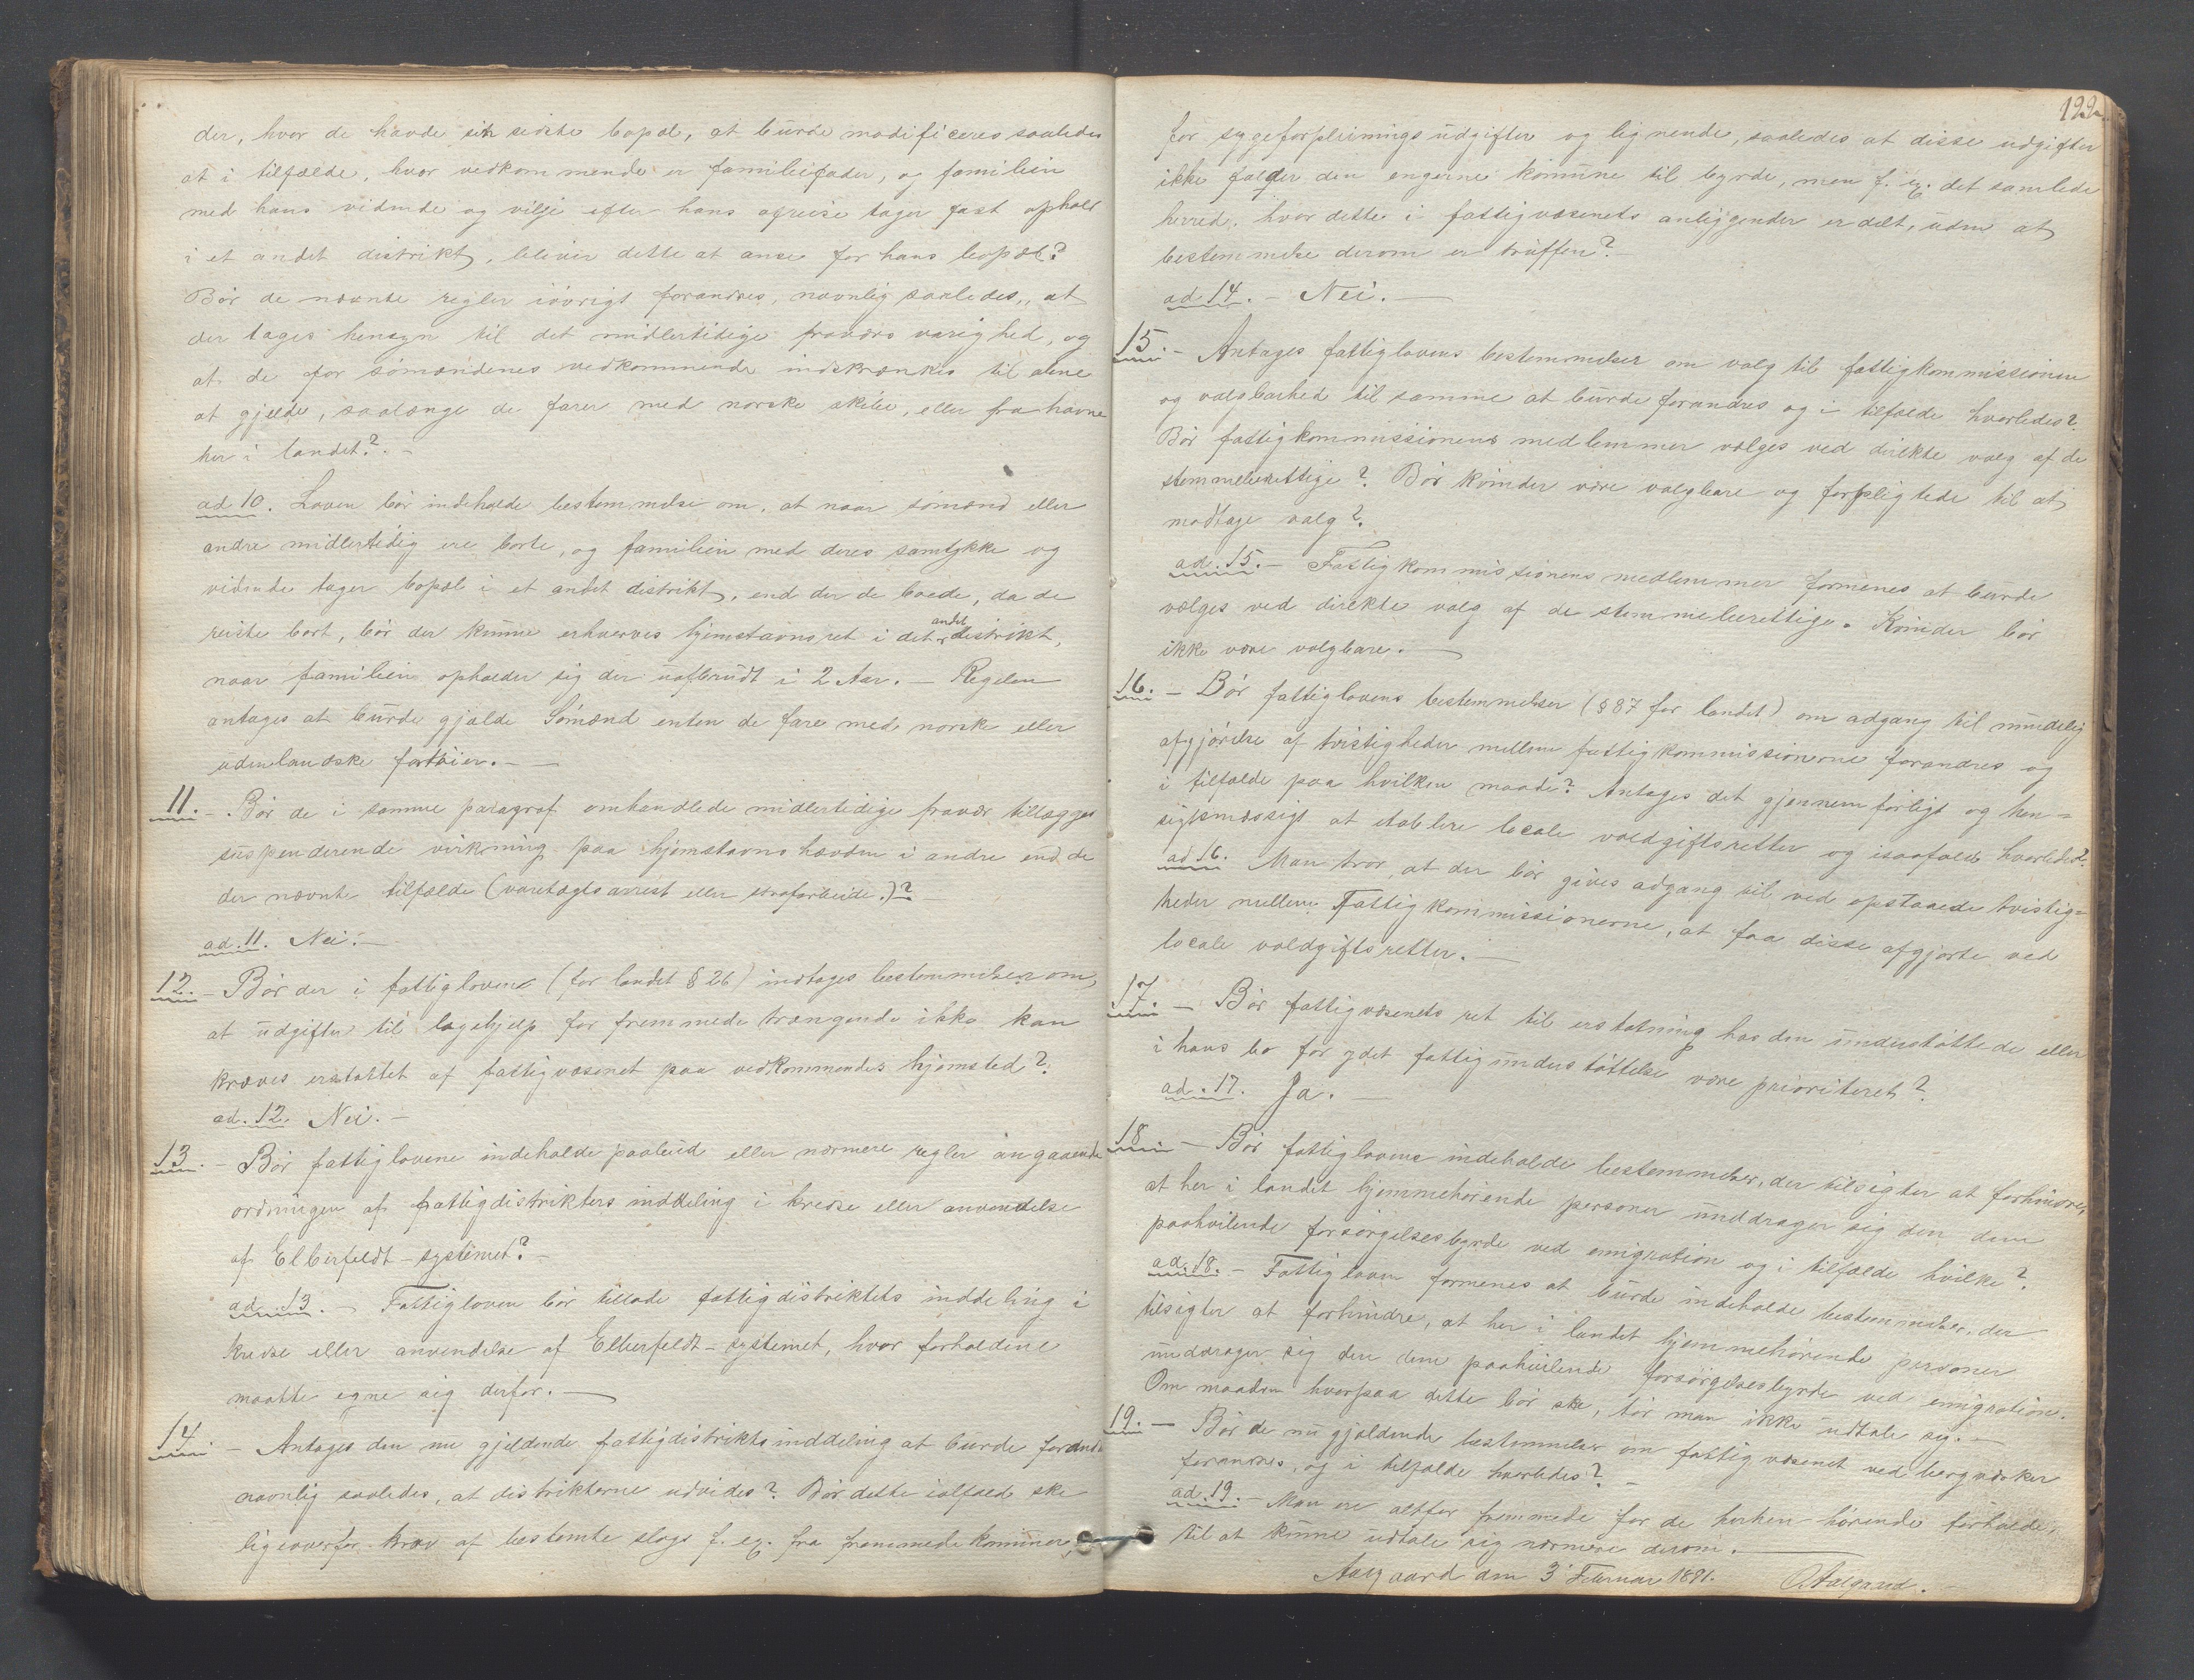 der, hvor de havde sin sidste bopæl, at burde modificeres saaledes
at i tilfælde, hvor vedkommende er familiefader, og familien
med hans vidende og vilje efter hans afreise tager fast ophold
i et andet distrikt, bliver dette at anse for hans bopæl?
Bør de nævnte regler iøvrigt forandres, navnlig saaledes, at
der tages hensyn til det midlertidige fraværs varighed, og
at de for sømændenes vedkommende indskrænkes til alene
at gjælde, saalænge de farer med norske skibe, eller fra havne
her i landet? -
ad 10. Loven bør indeholde bestemmelse om, at naar sømænd eller
andre midlertidig ere borte, og familien med deres samtykke og
vidende tager bopæl i et andet distrikt, end der de boede, da de
reiste bort, bør der kunne erhverves hjemstavnsret i det andet distrikt,
naar familien opholder sig der uafbrudt i 2 Aar. - Regelen
antages at burde gjælde Sømænd enten de fare med norske eller
udenlandske fartøier. -
11. - Bør de i samme paragraf omhandlede midlertidige fravær tillægges
suspenderende virkning paa hjemstavnshævden i andre end de
der nævnte tilfælde (varetægtsarrest eller strafarbeide.)? -
ad. 11. Nei. -
12. - Bør der i fattiglovene (for landet § 26) indtages bestemmelser om,
at udgifter til lægehjelp for fremmede trængende ikke kan
kræves erstattet af fattigvæsenet paa vedkommendes hjemsted?
ad. 12. Nei. -
13. - Bør fattiglovene indeholde paabud eller nærmere regler angaaende
ordningen af fattigdistrikters inddeling i kredse eller anvendelse
af Elberfeldt-systemet? -
ad. 13. - Fattigloven bør tillade fattigdistriktets inddeling i
kredse eller anvendelse af Elberfeldt-systemet, hvor forholdene
maatte egne sig derfor. -
14. - Antages den nu gjældende fattigdistriktsinddeling at burde forandres
navnlig saaledes, at distrikterne udvides? Bør dette ialfald ske
ligeoverfor krav af bestemte slags f. ex. fra fremmede kommuner,
122
for sygeforpleiningsudgifter og lignende, saaledes at disse udgifter
ikke falder den engere kommune til byrde, men f. ex. det samlede
herred, hvor dette i fattigvæsenets anliggender er delt, uden at
bestemmelse derom er truffen? -
ad 14. - Nei. -
15. - Antages fattiglovens bestemmelser om valg til fattigkommissionen
og valgbarhed til samme at burde forandres og i tilfælde hvorledes?
Bør fattigkommissionens medlemmer vælges ved direkte valg af de
stemmeberettige? Bør kvinder være valgbare og forpligtede til at
modtage valg?
ad. 15. - Fattigkommissionens medlemmer formenes at burde
vælges ved direkte valg af de stemmeberettige. Kvinder bør
ikke være valgbare. -
16. - Bør fattiglovens bestemmelser (§ 87 for landet) om adgang til mindelig
afgjørelse af tvistigheder mellem fattigkommissionerne forandres og
i tilfælde paa hvilken maade? Antages det gjennemførligt og hen=
sigtsmæssigt at etablere locale voldgiftsretter og isaafald hvorledes?
ad 16. Man tror, at der bør gives adgang til ved opstaaede tvistig=
heder mellem Fattigkommissionerne, at faa disse afgjorte ved
locale voldgiftsretter. -
17. - Bør fattigvæsenets ret til erstatning hos den understøttede eller
i hans bo for ydet fattigunderstøttelse være prioriteret?
ad. 17. Ja. -
18 - Bør fattiglovene indeholde bestemmelser, der tilsigter at forhindre,
at her i landet hjemmehørende personer unddrager sig den dem
paahvilende forsørgelsesbyrde ved emigration og i tilfælde hvilke?
ad. 18. - Fattigloven formenes at burde indeholde bestemmelser, der
tilsigter at forhindre, at her i landet hjemmehørende personer
unddrager sig den dem paahvilende forsørgelsesbyrde ved emigration.
Om maaden hvorpaa dette bør ske, tør man ikke udtale sig. -
19. - Bør de nu gjældende bestemmelser om fattigvæsenet ved bergværker
forandres, og i tilfælde hvorledes? -
ad. 19. - Man er altfor fremmede for de herhen-hørende forholde,
til at kunne udtale sig nærmere derom. -
Aalgaard den 3 Februar 1891. O. Aalgaard. -